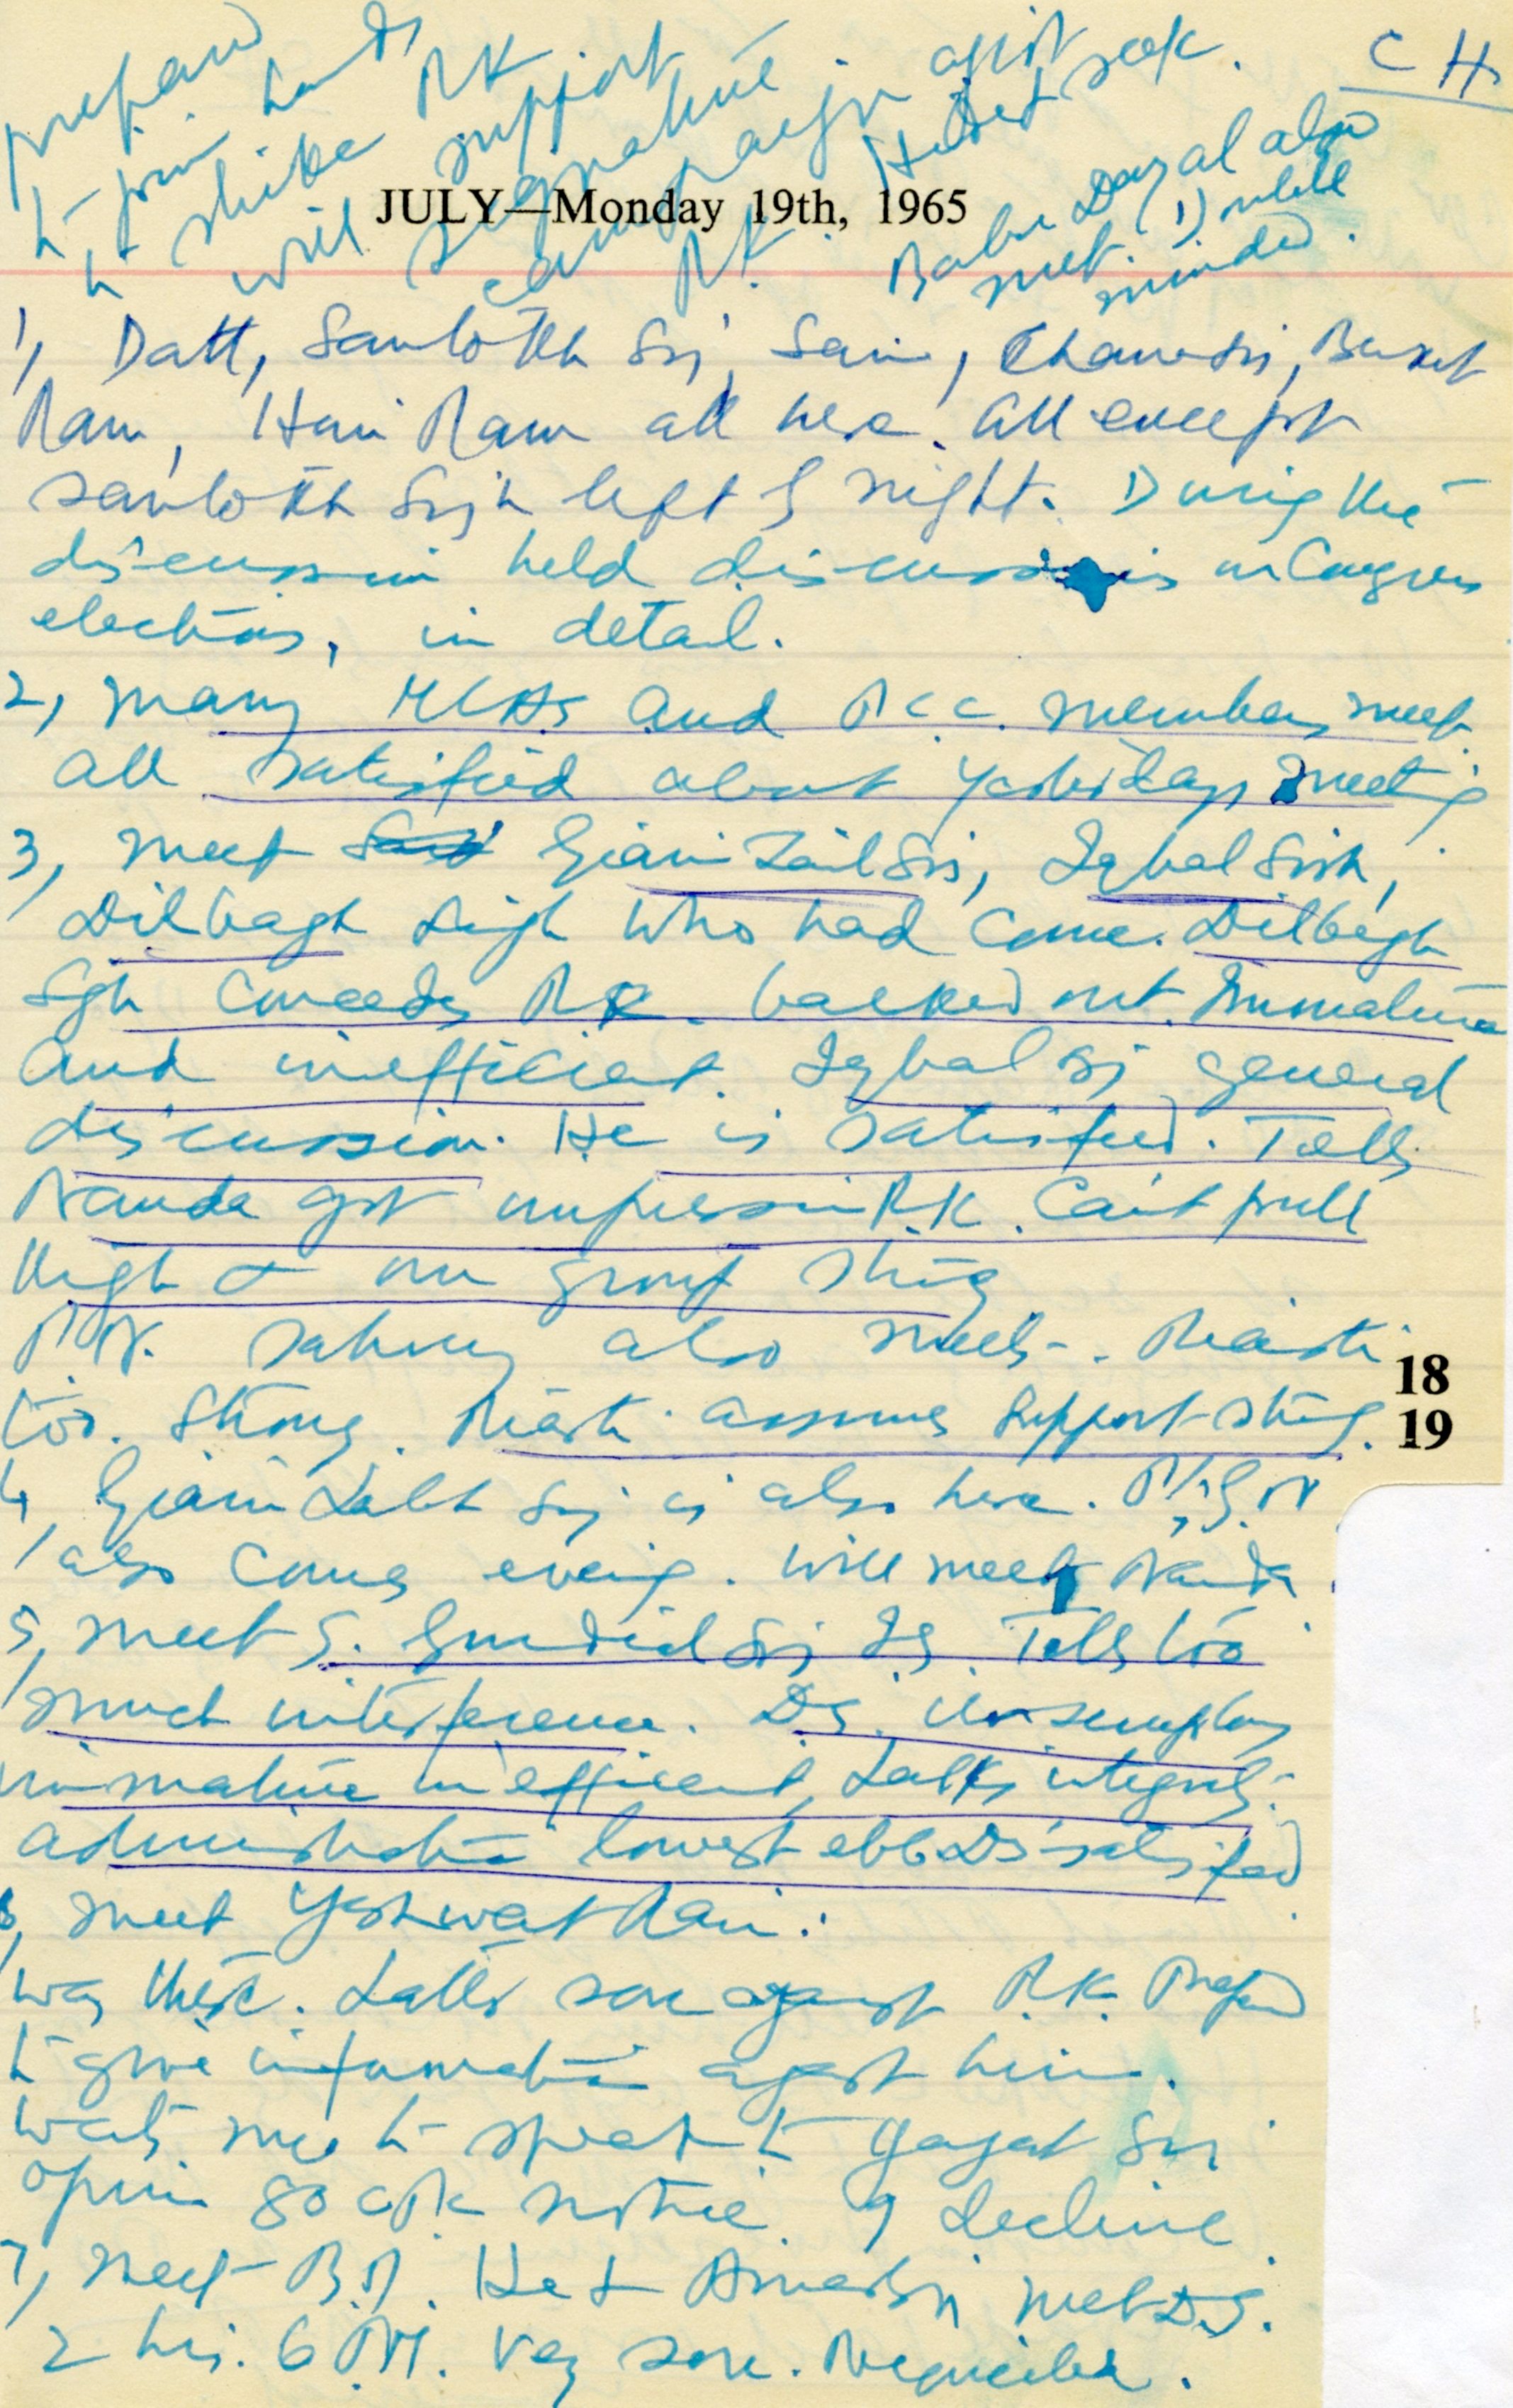 C H
prepared
to join hands
to strike RK
will support
signature
campaign agst
RK.
Babu Dayal also
met.
minded.
JULY—Monday 19th, 1965
1, Datt, Santokh Sgj, Saini, Chanan Sgj,
Ram, Hari Ram all here. All except
Santokh Sgjh left by night. During the
discussion held discussions on Congress
elections, in detail.
2, Many MLAs and PCC. members meet.
All satisfied about yesterdays meeting
3, Meet Giani Zail Sgj, Iqbal Sigh,
Dilbagh Sigh who had come. Dilbagh
Sgh concedes RK. backed out. Immature
and inefficient. Iqbal Sgj general
discussion. He is satisfied. Tells
Nanda got impression R.K. Cant pull
through & our group strong
P.N. Sahney also meets.
too. Strong. assures support strong.
4, Giani Sgj is also here.
also comes evening. Will meet Nanda.
5, Meet S. Gurdial Sgj IG. Tells too
much interference. DS. unscrupulous
immature inefficient, lacks integrity.
administration lowest ebb Dissatisfied
6, Meet Yashwat Rai.
was there. Latter sore against R.K. Prepared
to give information against him.
Wants me to speak to Sgj
notice. I decline.
7, Meet He & Amar Sgj met D.S.
2 hrs. 6 PM. Very sore.
18
19